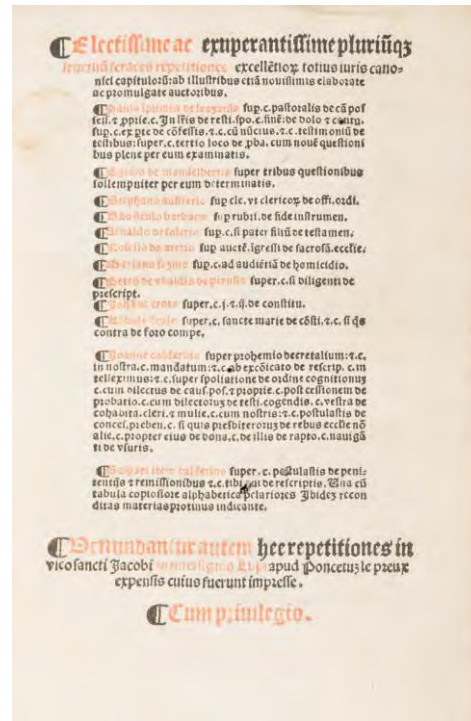 ¶Electissime ac exuperantissime pluriũqꝫ
fructuũ feraces repetitiones excellẽtioꝝ totius iuris cano-
nici capitulorũ: ab illustribus etiã nouissimis elaborate
ac promulgate auctoribus.
sup.c. pastoralis de cã pos
sess. ⁊ pprie.c. In lr̃is de resti.spo.c. finẽ: de dolo ⁊ contu.
sup.c. ex pte de cõfessis. ⁊.c. cũ nũcius. ⁊.c. testimoniũ de
testibus: super.c. tertio loco de pba. cum nouẽ questioni
bus plene per eum examinatis.
super tribus questionibus
sollempniter per eum determinatis.
¶Stephano aufrerio sup cle. vt clericoꝝ de offi. ordi.
barbacia sup rubri. de fide instrumen.
sup.c. si pater filiũ de testamen.
¶Rosello de aretio sup auctẽ. igressi de sacrosã. ecclie.
¶Mariano socyno sup.c. ad audiẽtiã de homicidio.
¶Petro de vbaldis de perusio super.c. si diligenti de
prescript.
¶Johãne croto super.c. j. ⁊ ij. de constitu.
super.c. sancte marie de cõsti. ⁊.c. si qs
contra de foro compe.
¶Joanne calderino super prohemio decretalium: ⁊.c.
in nostra.c. mandatum: ⁊.c. ab excõicato de rescrip. c. in
telleximus: ⁊.c. super spoliatione de ordine cognitionuꝫ
c. cum dilectus de caus. pos. ⁊ proprie.c. post cessionem de
probatio.c. cum dilectoruꝫ de testi. cogendis. c. vestra de
cohabita. cleri. ⁊ mulie.c. cum nostris: ⁊.c. postulastis de
conces. preben. c. si quis presbiteroruꝫ de rebus ecclie nõ
alie.c. propter eius de dona.c. de illis de rapto.c. nauigã
ti de vsuris.
¶Gaspari item calderino super.c. postulastis de peni-
tentijs ⁊ remissionibus ⁊.c. tibi qui de rescriptis. Una cũ
tabula copiosiore alphabetica pclariores Ibideꝫ recon
ditas materias protinus indicante.
¶Venundantur autem hee repetitiones in
vico sancti Jacobi in intersignio Lupi apud Poncetuꝫ le preux
expensis cuius fuerunt impresse.
¶Cum priuilegio.